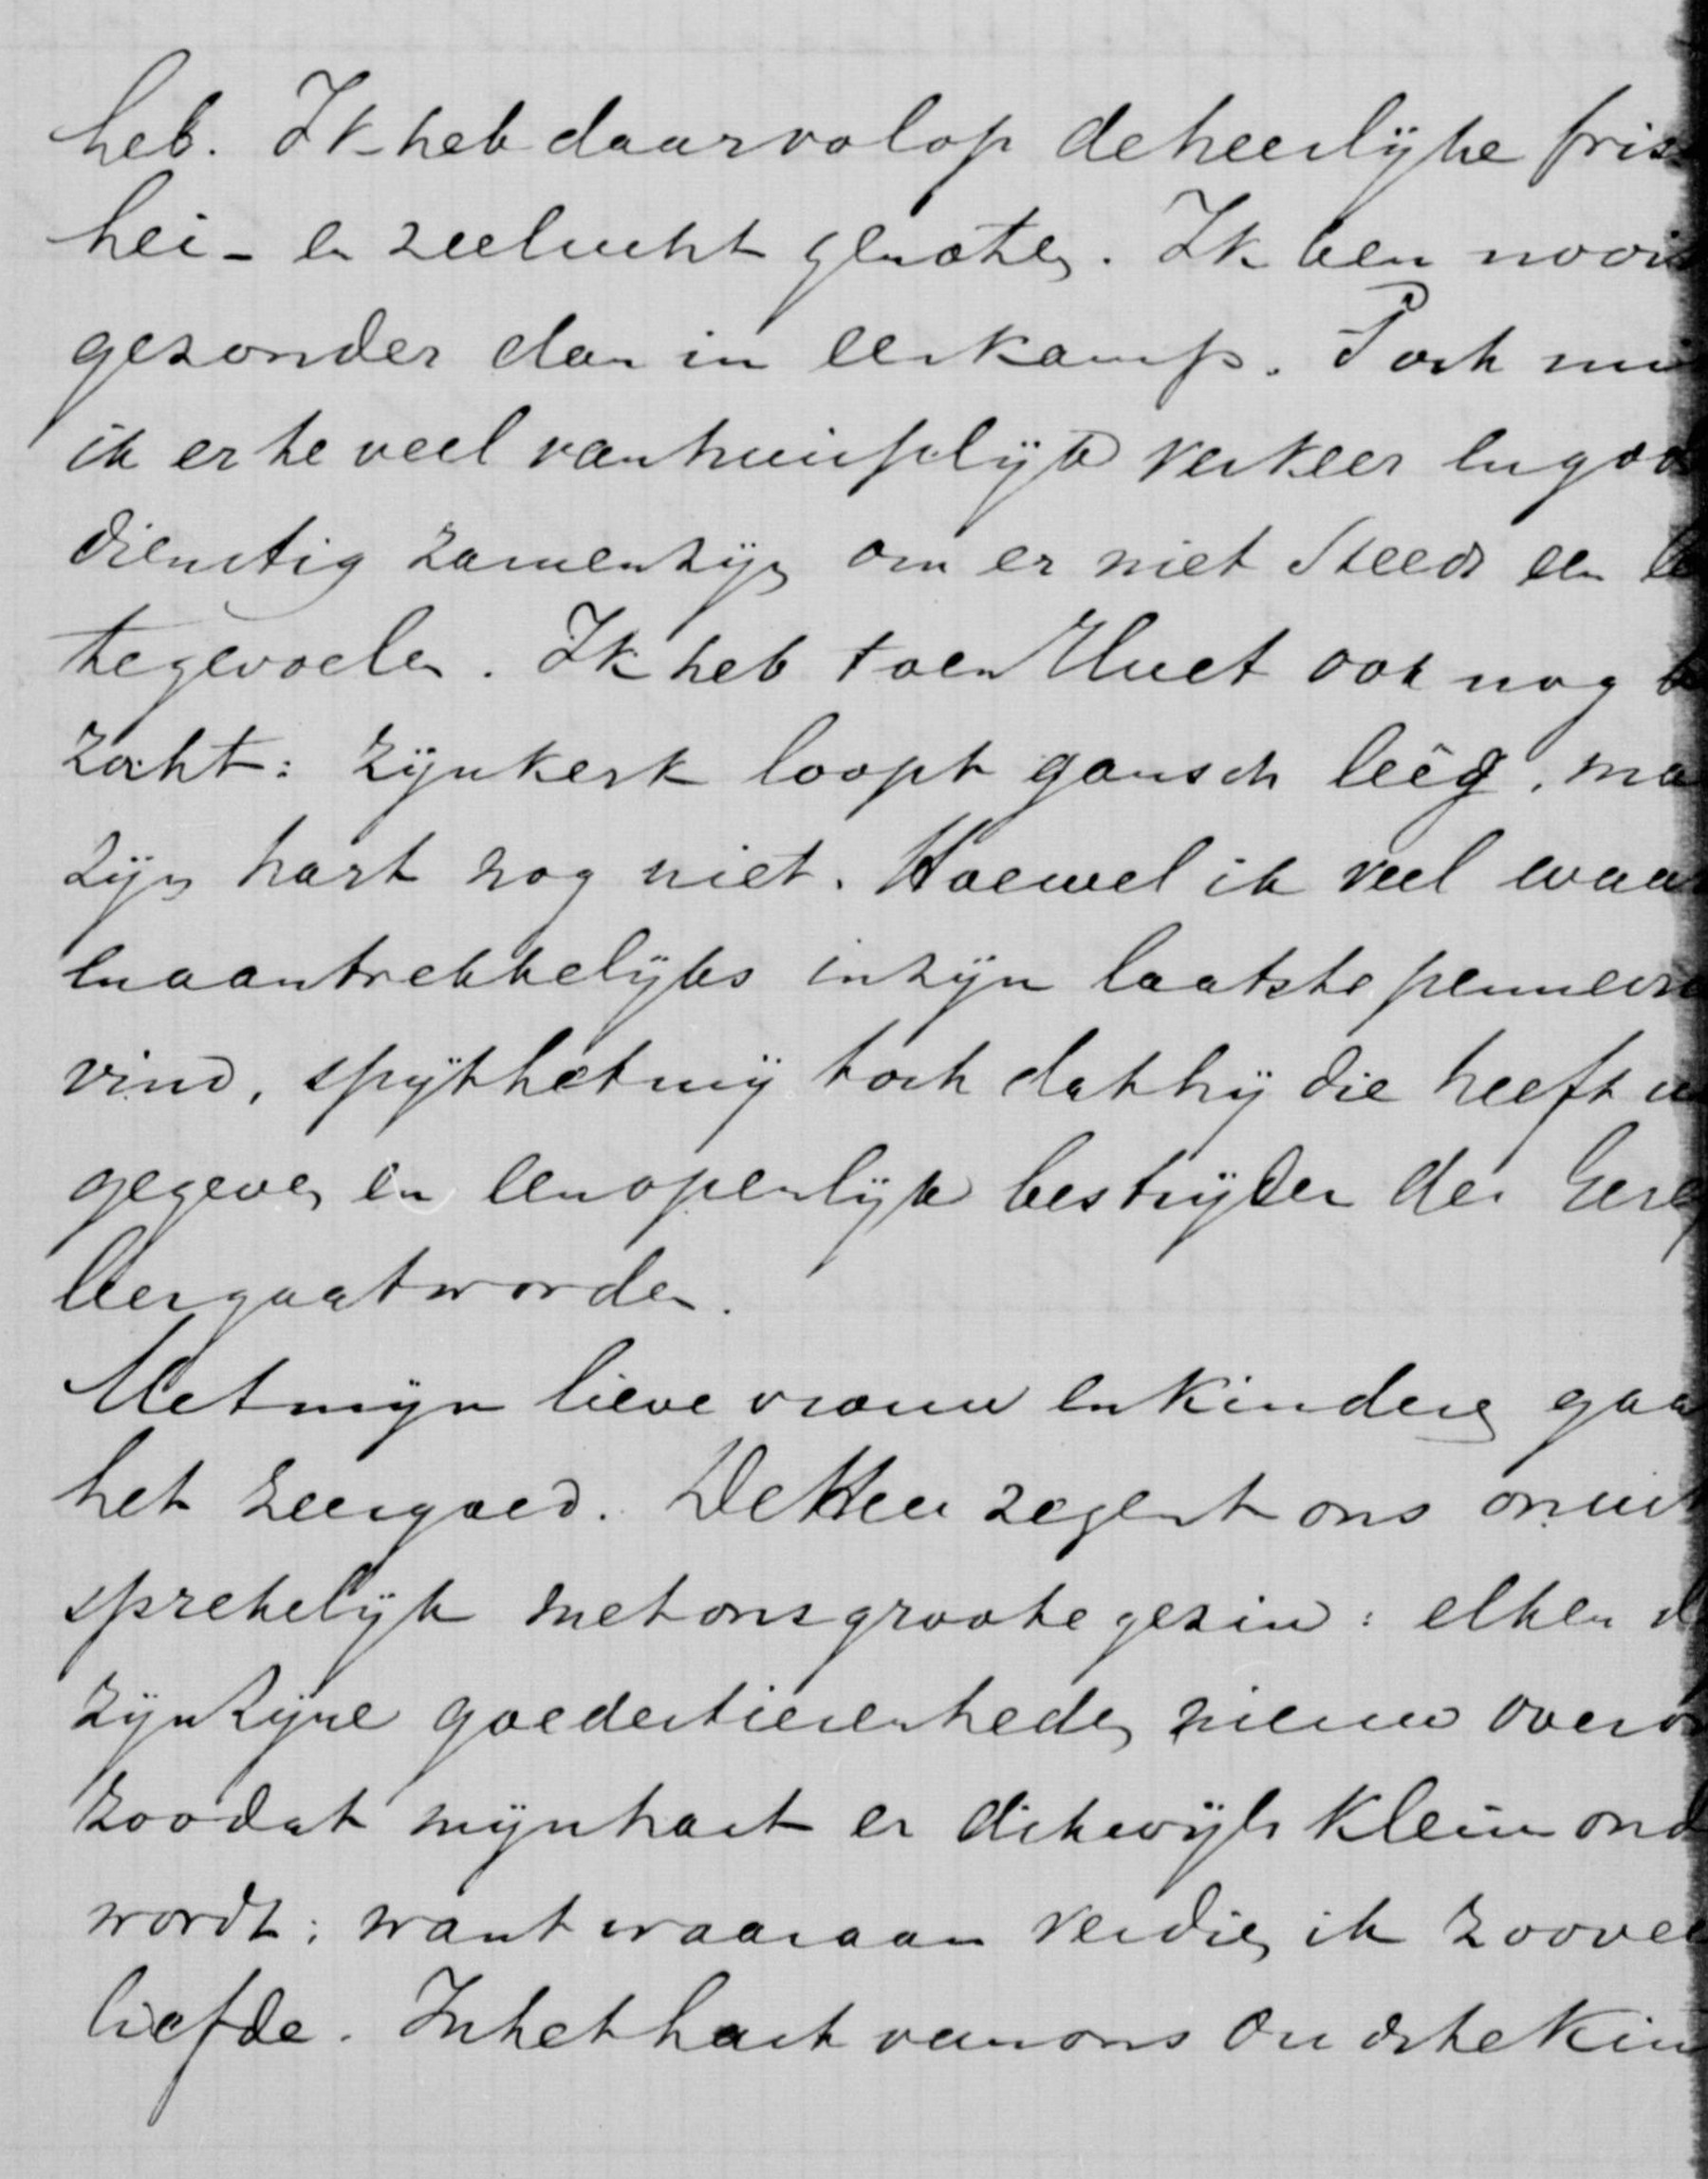 heb. Ik heb daar volop de heerlijke fris
hei- en zeelucht genoten. Ik ben nooi
gezonder dan in een kamp. Toch mi
ik er te veel van huisselijk verkeer en god
dienstig zamenzijn om er niet steeds een le
te gevoelen. Ik heb toen Huet ook nog b
zocht: zijn kerk loopt gansch leêg, ma
zijn hart nog niet. Hoewel ik veel waa
en aantrekkelijks in zijn laatste pennevr
vind, spijt het mij toch dat hij die heeft u
gegeven en een openlijk bestrijder der Ger
leer gaat worden.
Met mijn lieve vrouw en kinderen gaa
het zeer goed. De Heer zegent ons onuit
sprekelijk met ons groote gezin: elken d
zijn Zijne goedertierenheden nieuw over o
zoodat mijn hart er dikwijls klein ond
wordt: want waaraan verdien ik zoovee
liefde. In het hart van ons oudste kin